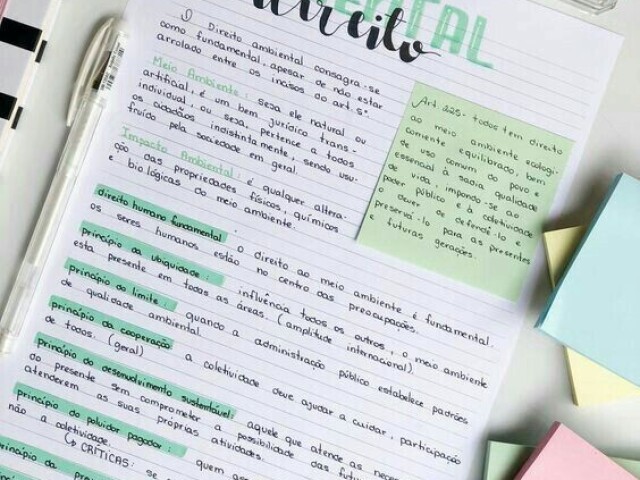 direito
O Direito ambiental consagra-se
como fundamental, apesar de não estar
arrolado entre os incisos do art. 5º.
Meio Ambiente: seja ele natural ou
artificial, é um bem jurídico trans-
individual, ou seja, pertence a todos
os cidadãos indistintamente, sendo usu-
fruído pela sociedade em geral.
Impacto Ambiental: é qualquer altera-
ção das propriedades físicos, químicos
e biológicas do meio ambiente.
Art. 225- todos tem direito
ao meio ambiente ecologi-
camente equilibrado, bem
de uso comum do povo e
essencial à sadia qualidade
de vida, impondo-se ao
poder público e à coletividade
o dever de defendê-lo e
preservá-lo para as presentes
e futuras gerações.
direito humano fundamental: o direito ao meio ambiente é fundamental.
os seres humanos estão no centro das preocupações.
princípio da ubiquidade: influência todos os outros, o meio ambiente
esta presente em todas as áreas. (amplitude internacional)
princípio do limite: quando a administração público estabelece padrões
de qualidade ambiental.
princípio da cooperação: a coletividade deve ajudar a cuidar, participação
de todos. (geral)
princípio do desenvolvimento sustentável: aquele que atende as neces
do presente sem comprometer a possibilidade das futu
atenderem as suas próprias atividades.
princípio do poluidor pagador: quem
não a coletividade.
CRÍTICAS: se
princípio da